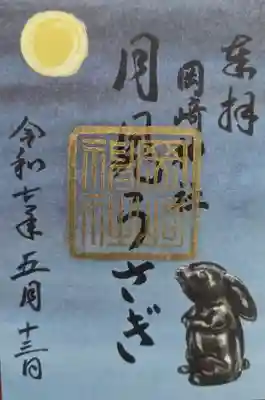 奉拝
岡崎神社
月 うさぎ
令和七年五月十三日